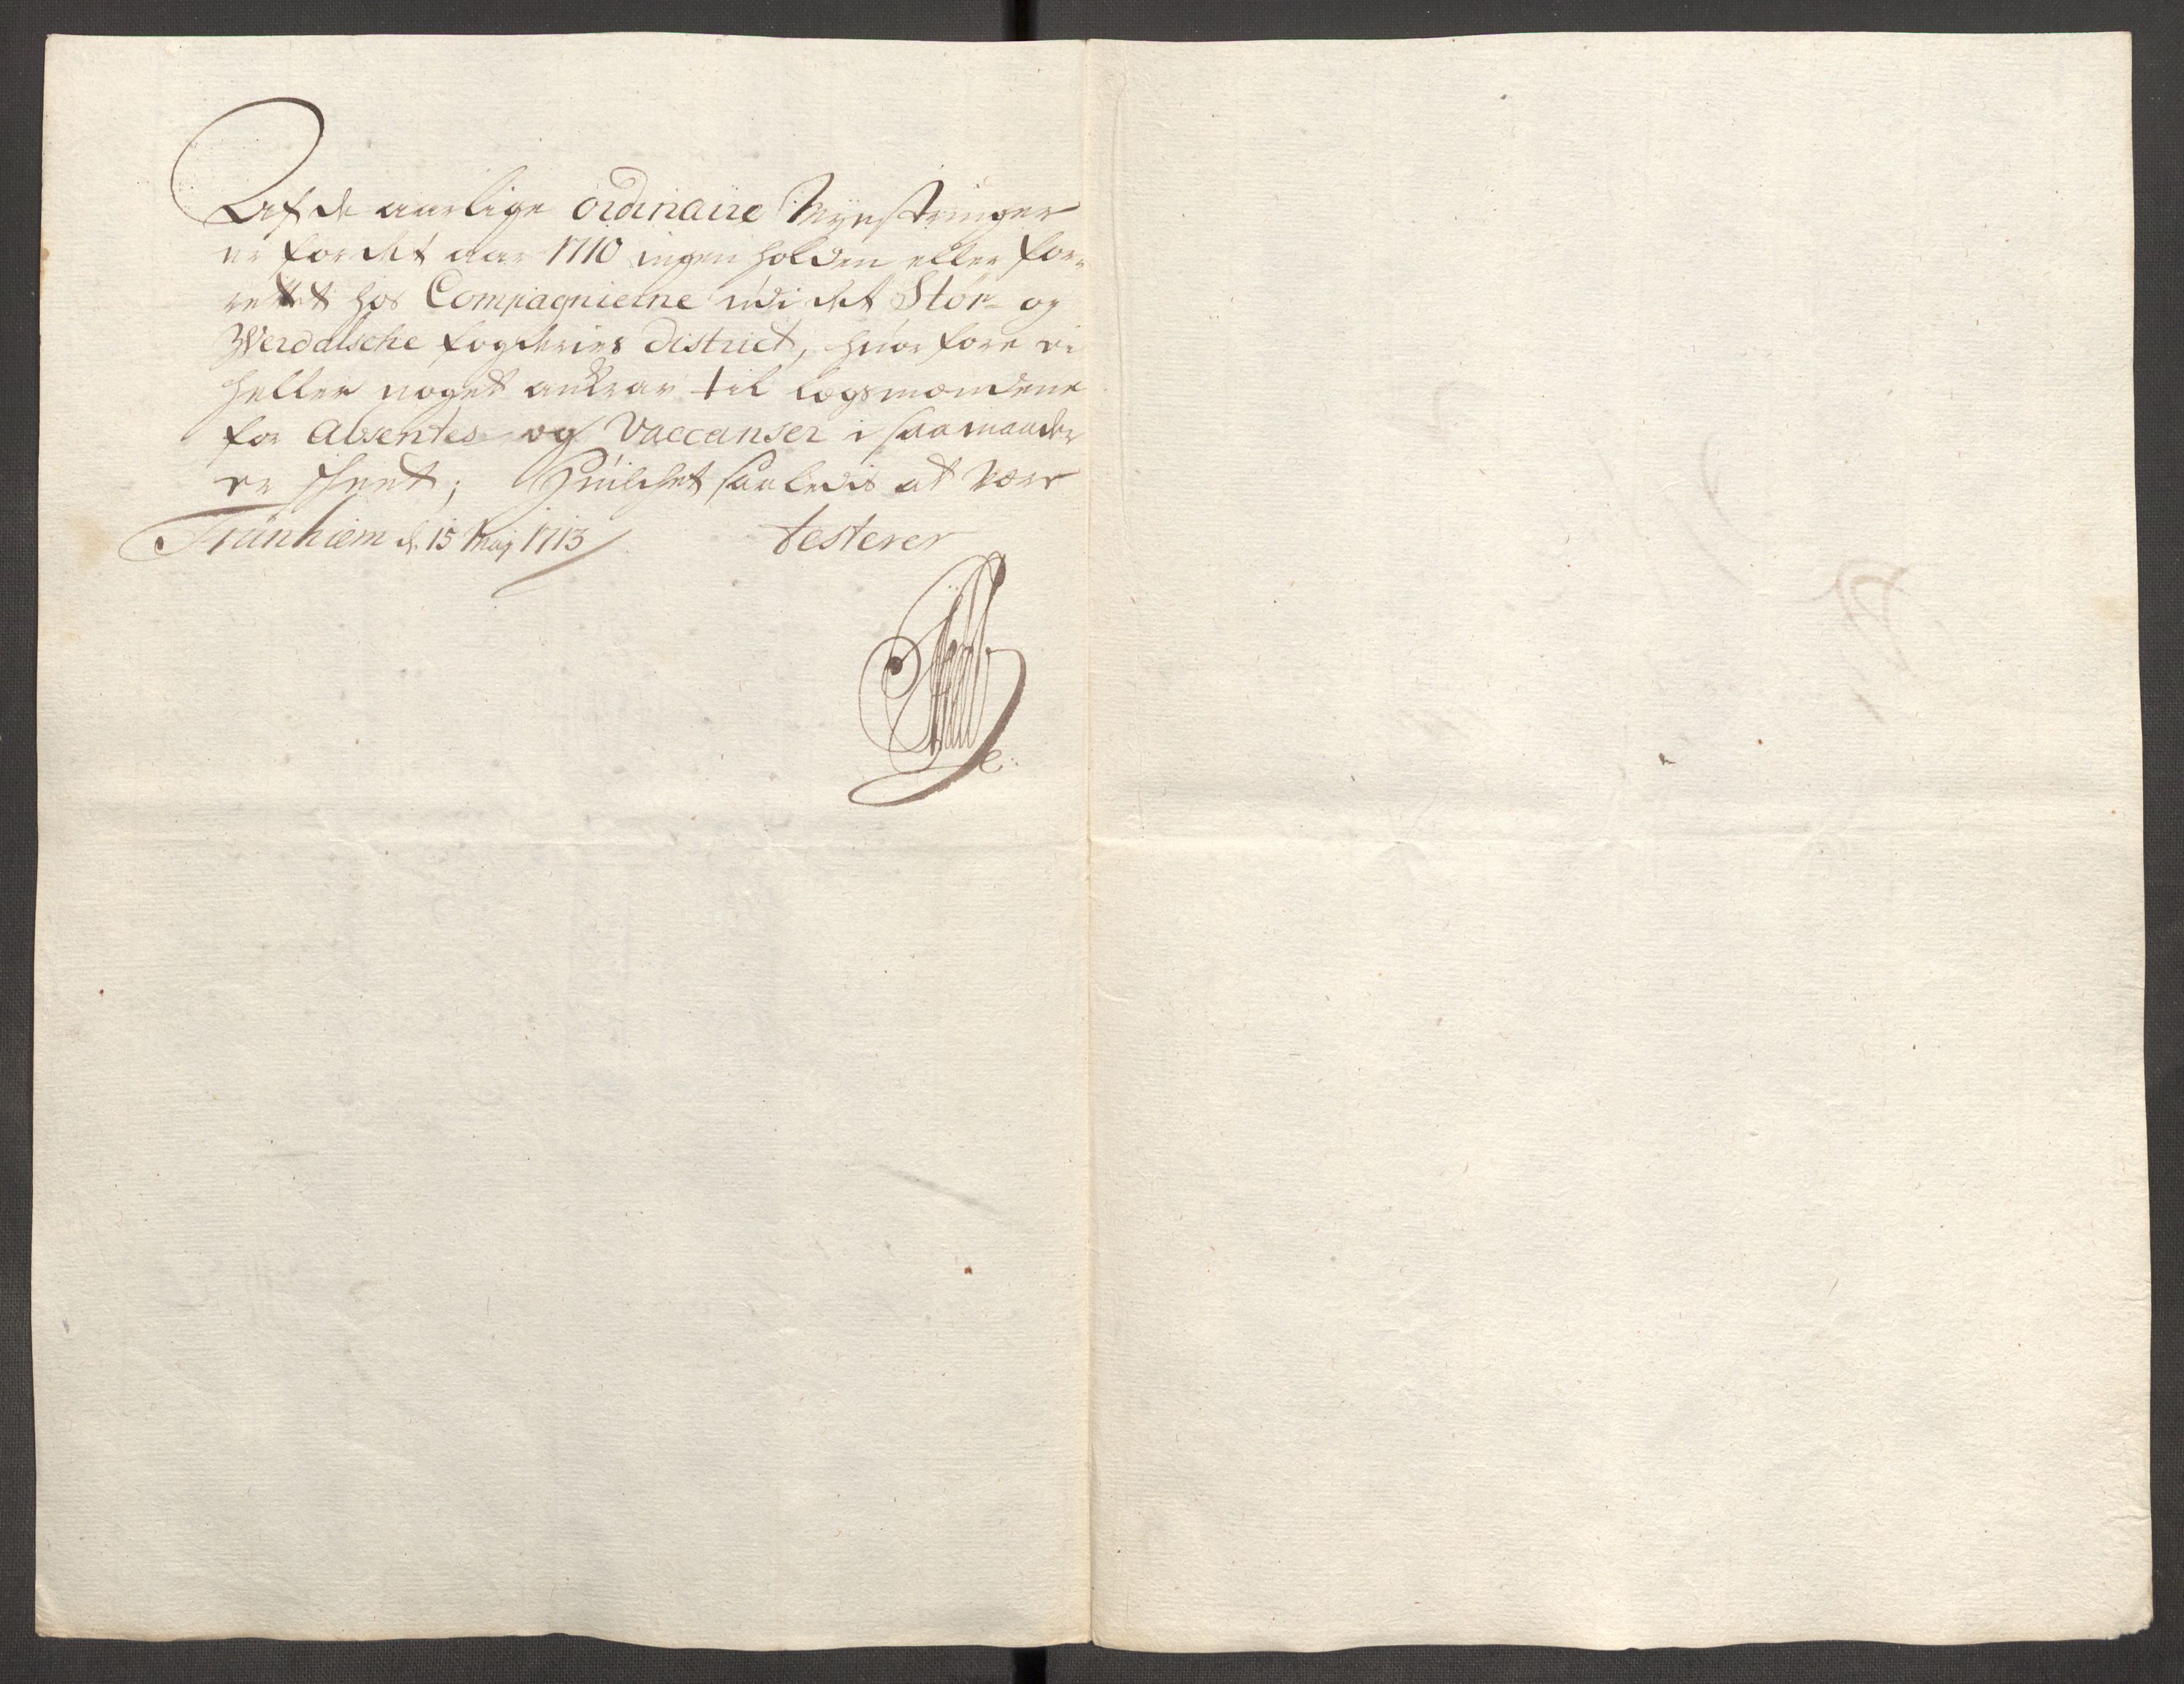 Af de aarlige ordinaire Mynstringer
er for det aar 1710 ingen holden eller for-
rettet hos Compagnierne udi det Stør- og
Werdalsche fogderies district, hvorfore ei
heller noget ankrav til lægsmændene
for Absentes og Vaccanser i saa maader
er skeet; Huilchet saaledis at være
Trünhiem d. 15 Maj 1713 testerer